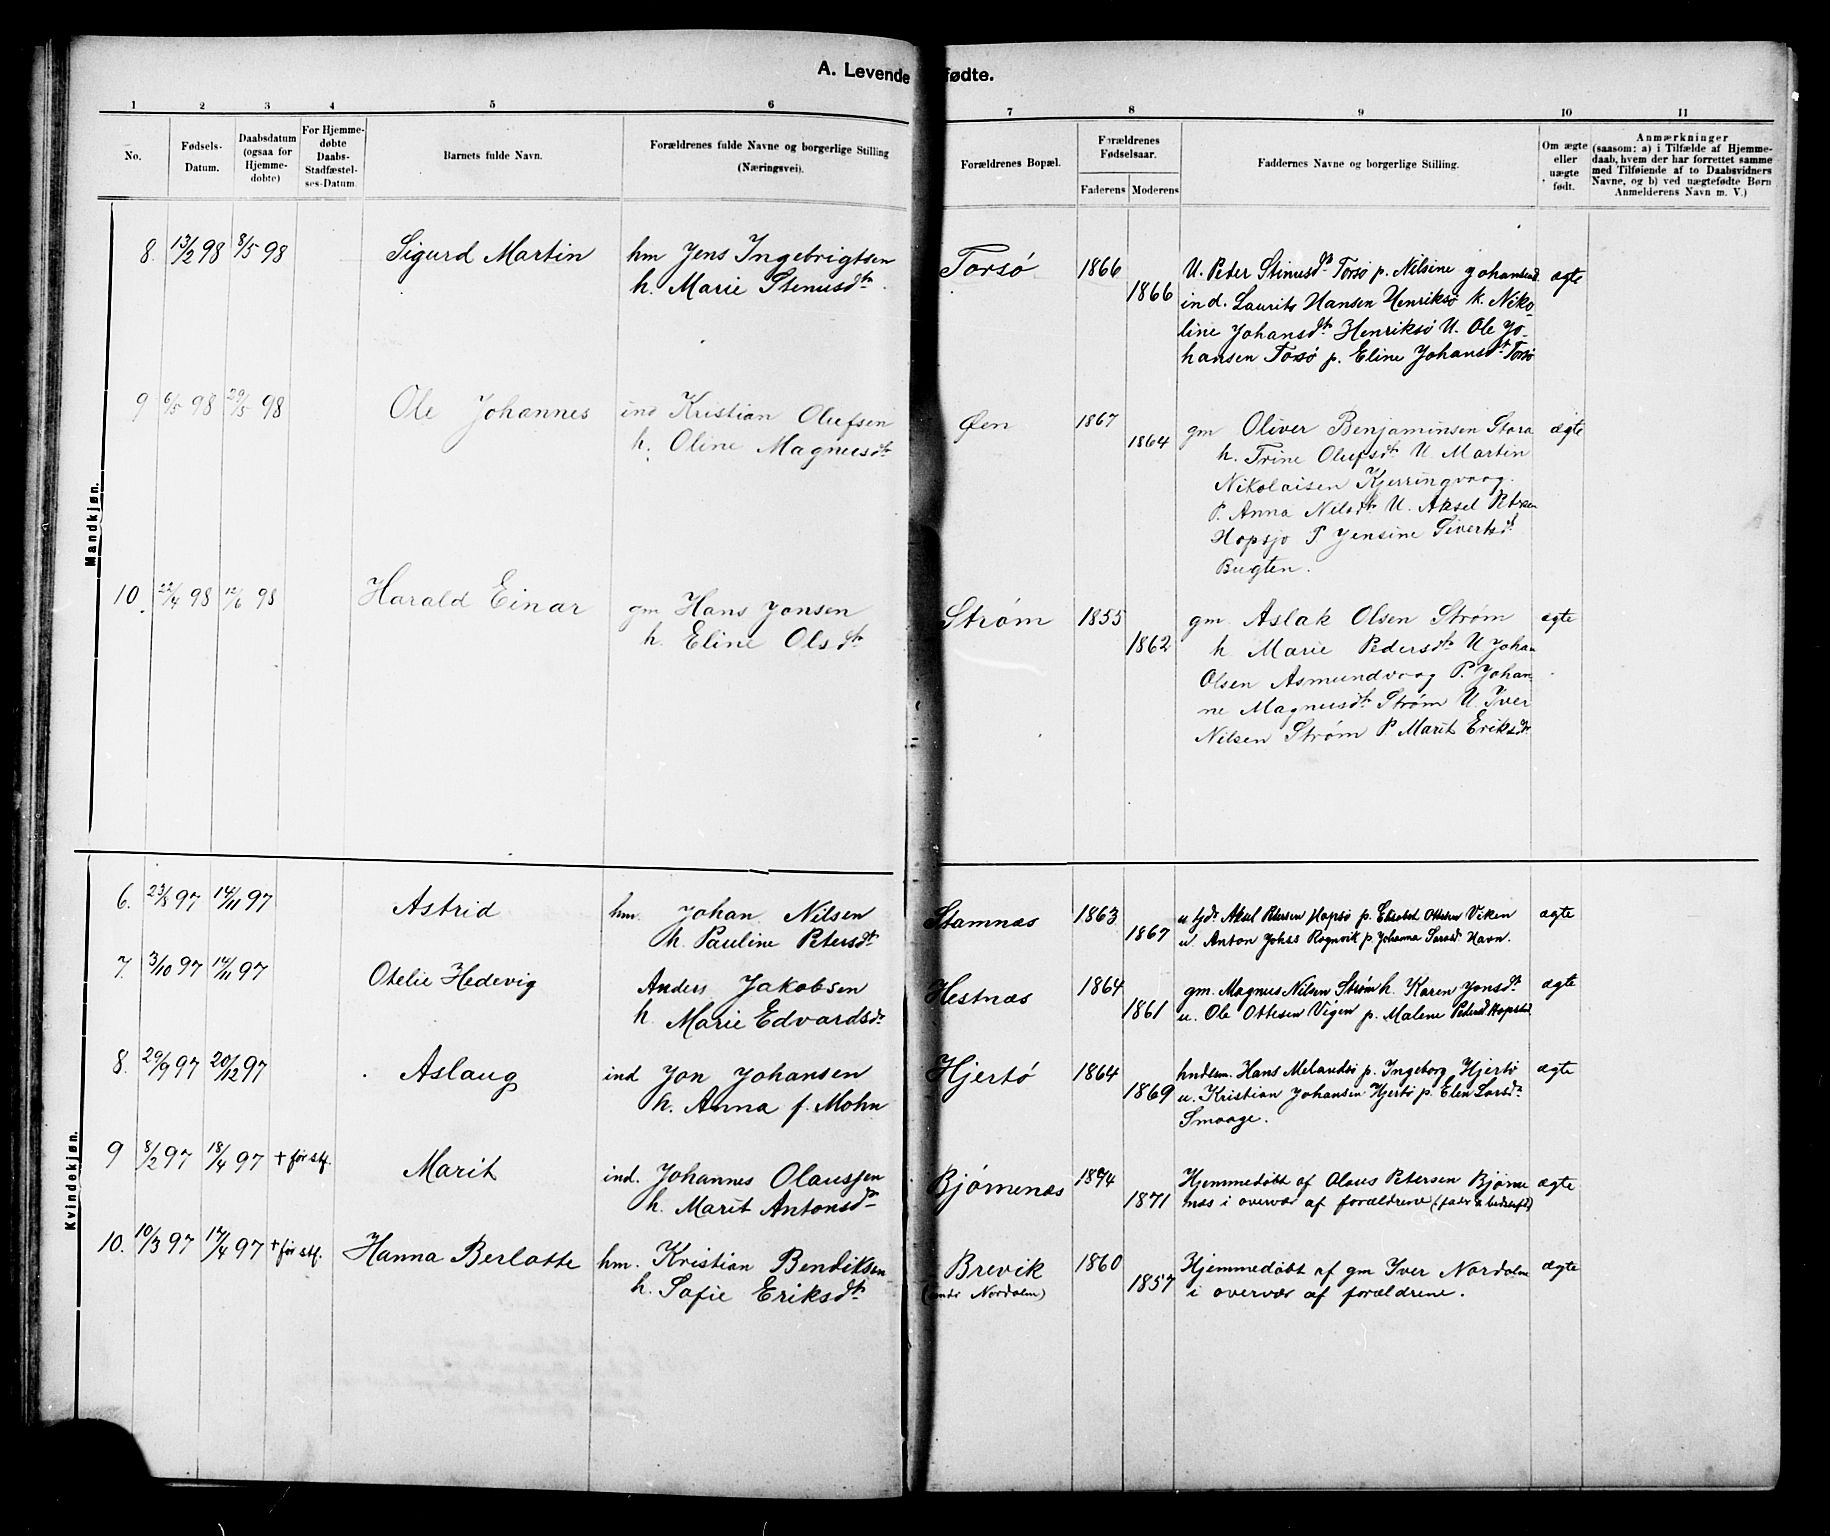 A. Levende fødte.
1 2 3 4 5 6 7 8 9 10 11
No.
Fødsels-
Datum.
Daabsdatum
(ogsaa for
Hjemme-
døbte)
For Hjemme-
døbte
Daabs-
Stadfæstel-
ses-Datum.
Barnets fulde Navn.
Forældrenes fulde Navne og borgerlige Stilling
(Næringsvei).
Forældrenes Bopæl.
Forældrenes
Fødselsaar.
Faderens Moderens
Faddernes Navne og borgerlige Stilling.
Om ægte
eller
uægte
født.
Anmærkninger
(saasom: a) i Tilfælde af Hjemme-
daab, hvem der har forrettet samme
med Tilføiende af to Daabsvidners
Navne, og b) ved uægtefødte Børn
Anmelderens Navn m. V.)
Mandkjøn.
8. 13/2 98 8/5 98 Sigurd Martin
hm Jens Ingebrigtsen
h. Marie Stenusdtr
Torsø 1866 1866
U. Peder Stinusdtr Torsø p. Nilsine Johansd
ind. Laurits Hansen Henriksø k. Niko-
line Johansdtr Henriksø U. Ole Jo-
hansen Torsø p. Eline Johansdtr Torsø
ægte
9 6/5 98 29/5 98 Ole Johannes
ind Kristian Olufsen
h. Oline Magnusdtr
Øen 1867 1864
gm Oliver Benjaminsen Stora
h. Trine Olufsdtr U Martin
Nikolaisen Kjerringvaag.
P. Anna Nilsdtr U. Aksel Petersen
Hopsjø P Jensine Sivertsdtr
Bugten.
ægte
10. 22/4 98 12/6 98 Harald Einar
gm Hans Jonsen
h. Eline Olsdtr
Strøm 1855 1862
gm Aslak Olsen Strøm
h Marie Pedersdtr U Johan
Olsen Asmundvaag P. Johan-
ne Magnusdtr Strøm U. Iver
Nilsen Strøm P Marit Eriksdtr
ægte
Kvindekjøn.
6. 23/8 97 14/11 97 Astrid
hm. Johan Nilsen
h. Pauline Petersdtr
Stamnæs 1863 1867
u tjdr Aksel Petersen Hopsø p. Elisabet Ottesen Viken
u. Anton Johns Rognvik p Johanna Larsdtr Havn.
ægte
7. 3/10 97 14/11 97 Otelie Hedevig
Anders Jakobsen
h. Marie Edvardsdtr
Hestnæs 1864 1861
gm. Magnus Nilsen Strøm h. Karen Jonsdtr
u. Ole Ottesen Vigen p. Malene Petersd Hopstad
ægte
8. 29/9 97 20/12 97 Aslaug
ind Jon Johansen
h. Anna f. Mohn
Hjertø 1864 1869
hndsm. Hans Melandsø p. Ingeborg Hjertø
u. Kristian Johansen Hjertø p. Elen Larsdtr
Smaage.
ægte
9 8/2 97 18/4 97 + før stf. Marit
ind. Johannes Olaussen
h. Marit Antonsdtr
Bjørnenæs 1874 1871
Hjemmedøbt af Olaus Petersen Bjørne
næs i overvær af forældrene (fader & bedstefd)
ægte
10. 10/3 97 17/4 97 + før stf. Hanna Berlotte
hm. Kristian Bendiksen
h. Sofie Eriksdtr
Brevik
(undr Nordalm)
1860 1857
Hjemmedøbt af gm Iver Nordalm
i overvær af forældrene.
ægte